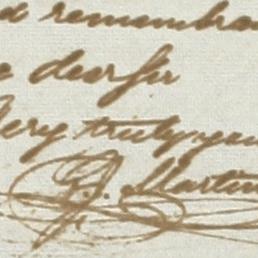 d remembran
e dear sir
Very truly you
G. Martin